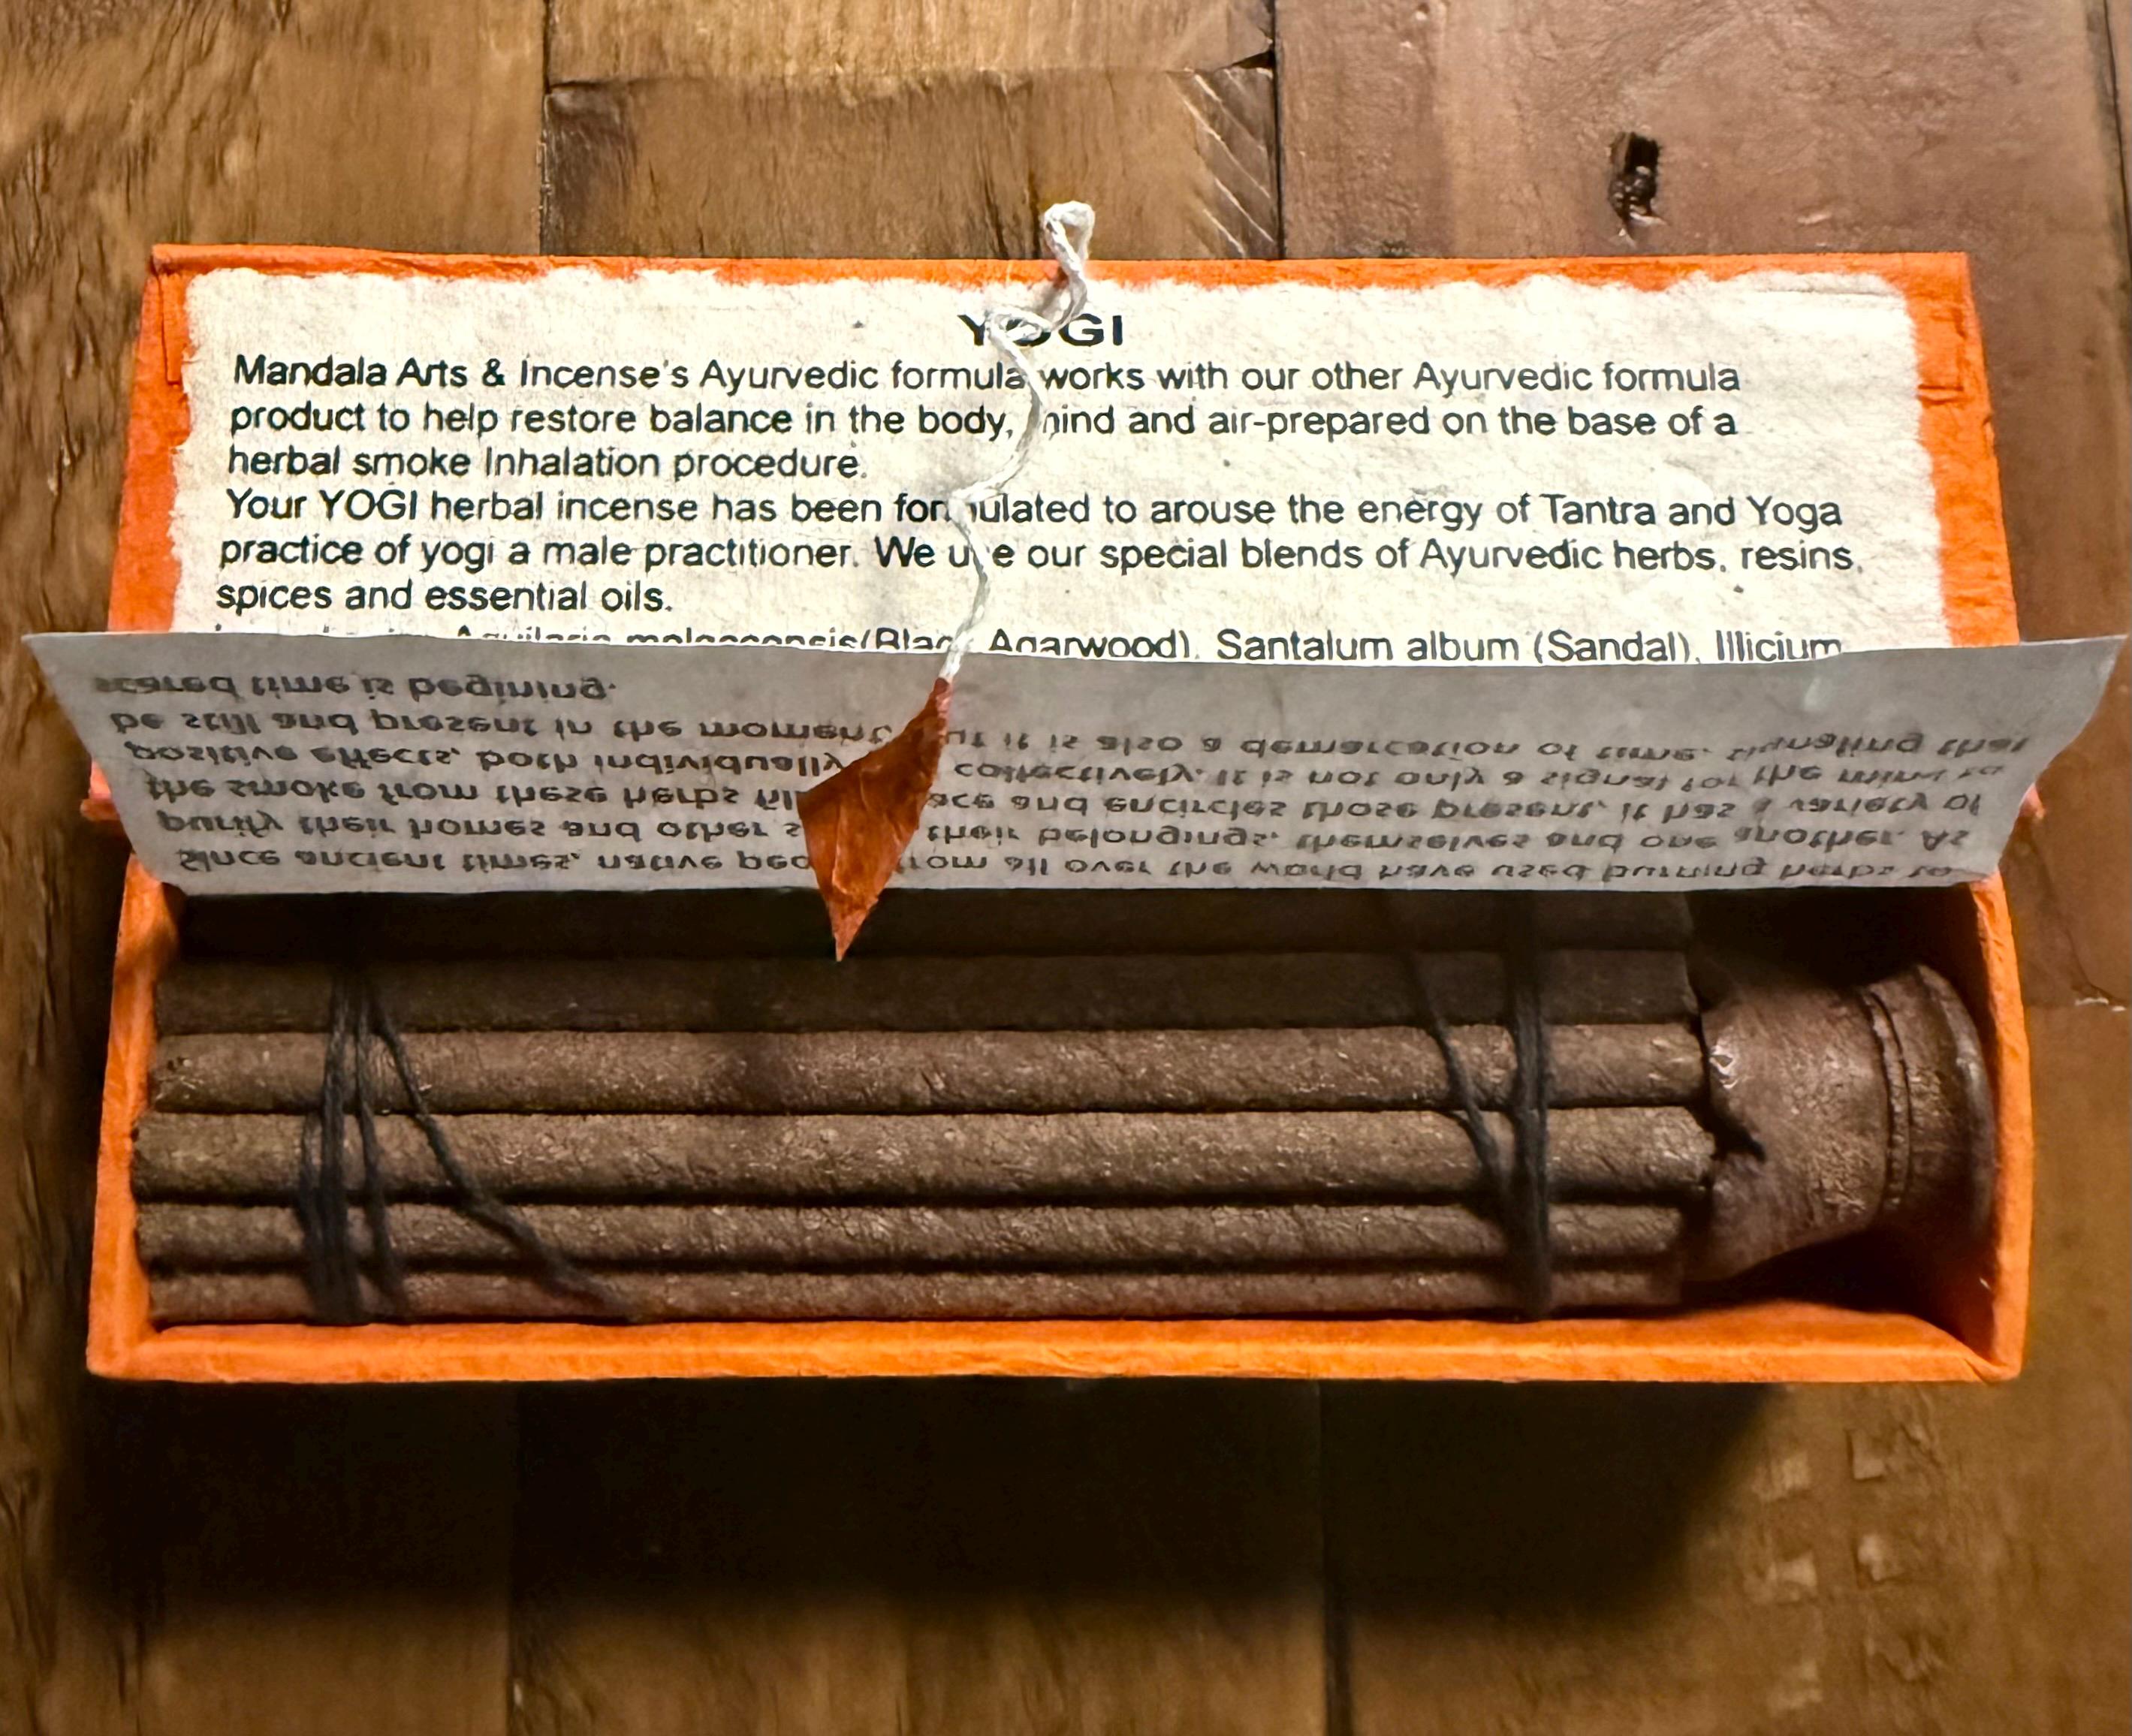 YOGI
Mandala Arts & Incense's Ayurvedic formula works with our other Ayurvedic formula
product to help restore balance in the body, mind and air-prepared on the base of a
herbal smoke Inhalation procedure.
Your YOGI herbal incense has been formulated to arouse the energy of Tantra and Yoga
practice of yogi a male practitioner. We use our special blends of Ayurvedic herbs, resins,
spices and essential oils.
Aquilaria malaccensis(Black Agarwood), Santalum album (Sandal), Illicium
Since ancient times, native from all over the world have used burning herbs to
purify their homes and other their belongings, themselves and one another. As
the smoke from these herbs and encircles those present, it has a variety of
positive effects, both individually collectively. It is not only a signal for the mind to
be still and present in the moment, but it is also a demarcation of time, signaling that
scared time is begining.